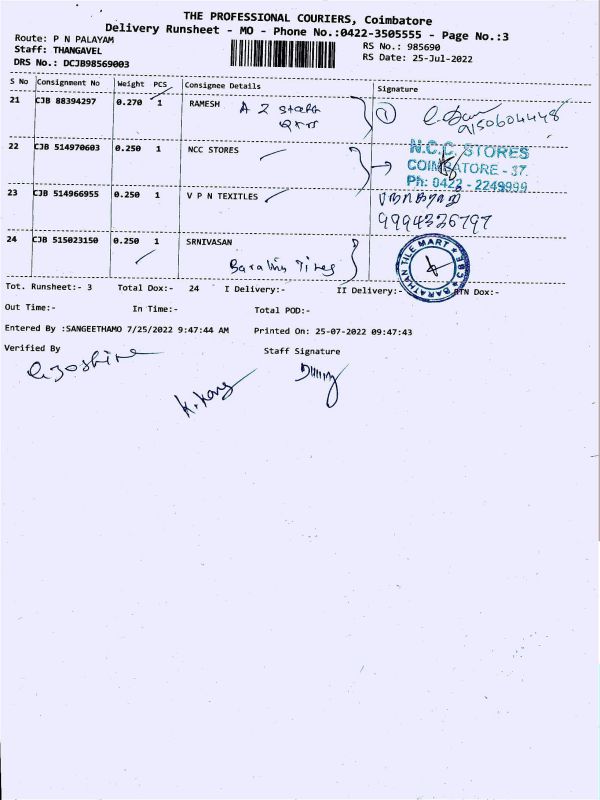 THE PROFESSIONAL COURIERS, Coimbatore
Delivery Runsheet - MO - Phone No.:0422-3505555 - Page No.:3
Route: P N PALAYAM
RS No.: 985690
Staff: THANGAVEL
RS Date: 25-Jul-2022
DRS No.: DCJB98569003
S No Consignment No Weight PCS Consignee Details Signature
21 CJB 88394297 0.270 1 RAMESH A Z
22 CJB 514970603 0.250 1 NCC STORES
N.C.C. STORES
COIMBATORE - 37.
Ph: 0422 - 2249999
23 CJB 514966955 0.250 1 V P N TEXITLES
9994326797
24 CJB 515023150 0.250 1 SRNIVASAN
BARATHAN TILE MART ★ CBE ★
Tot. Runsheet:- 3 Total Dox:- 24 I Delivery:- II Delivery:- RTN Dox:-
Out Time:- In Time:- Total POD:-
Entered By :SANGEETHAMO 7/25/2022 9:47:44 AM Printed On: 25-07-2022 09:47:43
Verified By Staff Signature